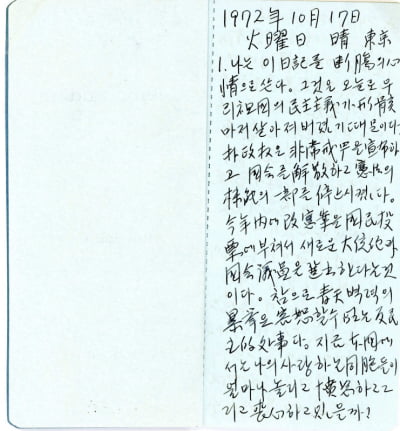 1972年 10月 17日
火曜日 晴 東京
1. 나는 이 日記를 断腸의 心
情으로 쓴다. 그것은 오늘로 우
리 祖国의 民主主義가 形骸
마저 살아져 버렸기 때문이다
朴政权은 非常戒厳을 宣佈하
고 国会를 解散하고 憲法의
機能의 一部를 停止시켰다.
今年内에 改憲案을 国民投
票에 부쳐서 새로운 大統領과
国会議員을 選出한다는 것
이다. 참으로 青天벽력의
暴挙요 容恕할 수 없는 反民
主的 処事다. 지금 本国에
서는 나의 사랑하는 同胞들이
얼마나 놀라고 憤怒하고 그
리고 喪心하고 있을까?